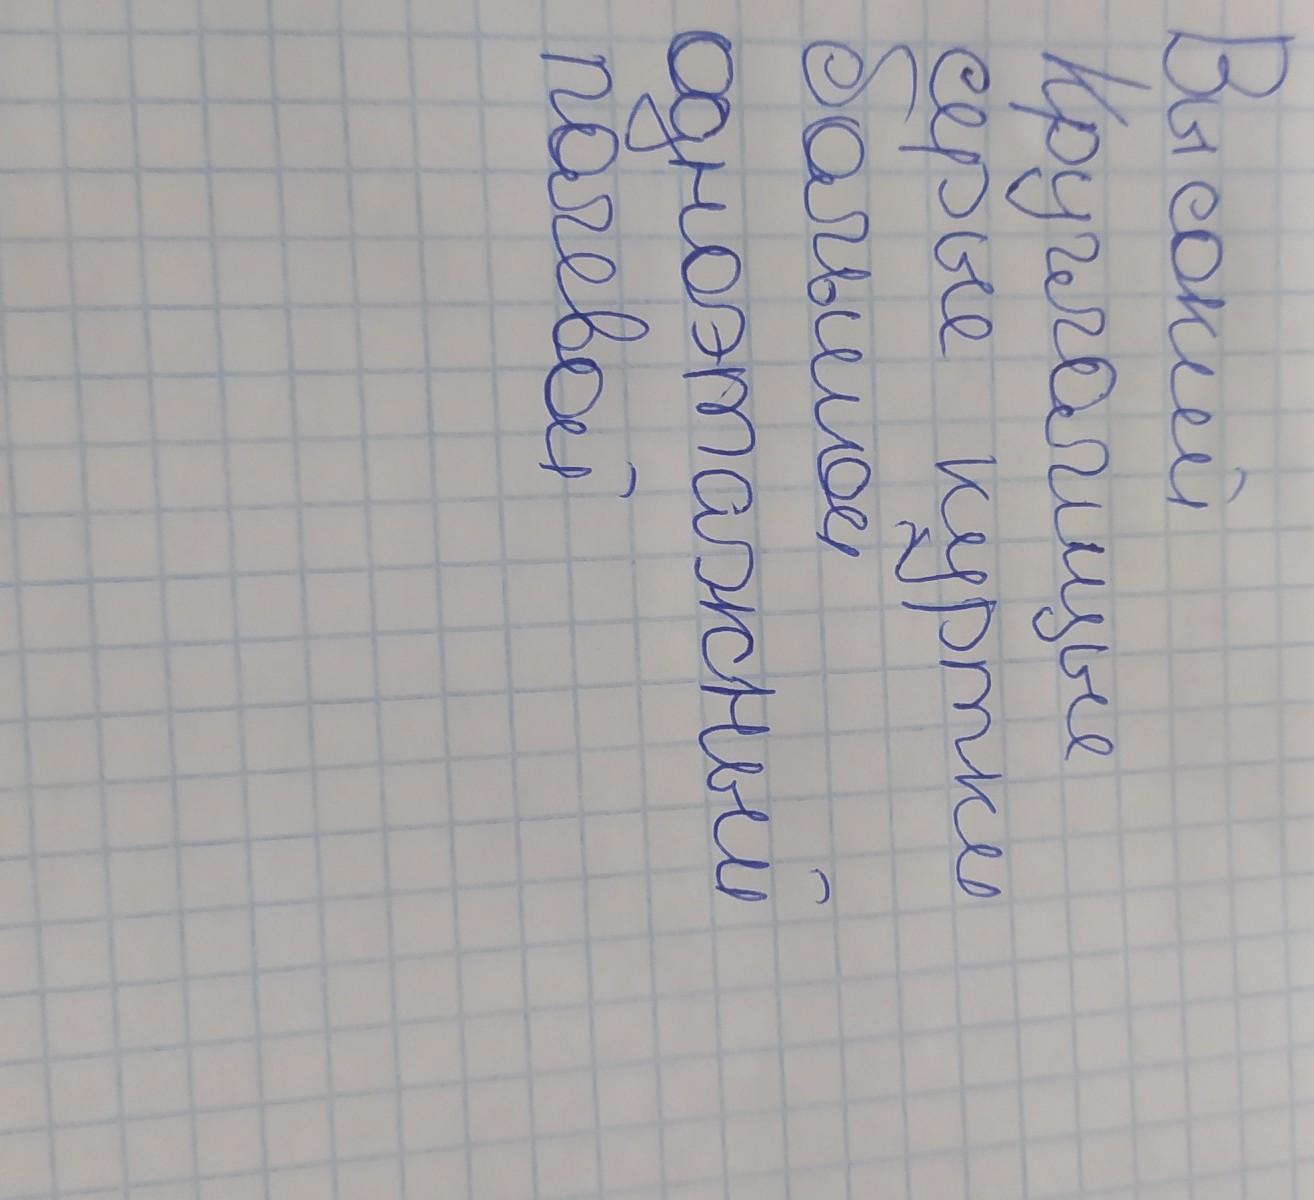 Высокий
Круглолицые
серые куртки
большой
одноэтажный
полевой